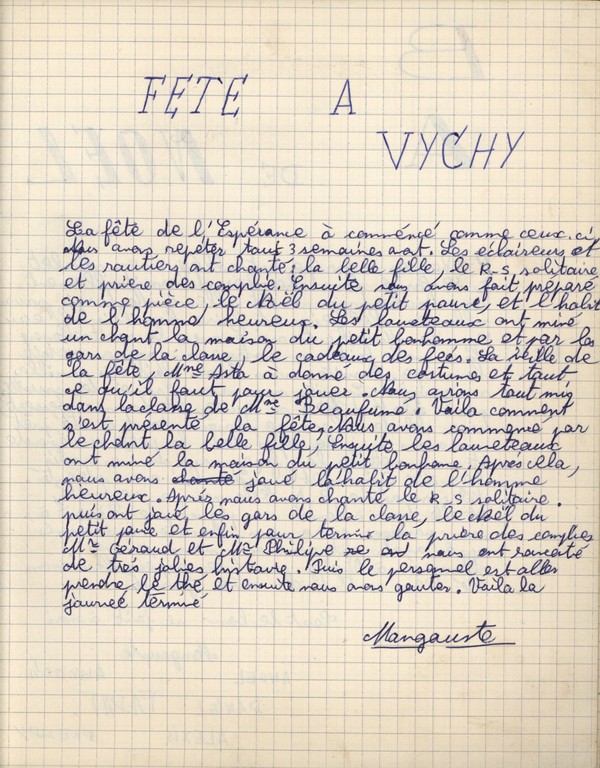 FETE A
VYCHY
La fête de l'Espérance à commençé comme ceux-ci
Nous avons repéter tout 3 semaines avat. Les éclaireurs et
les routiers ont chanté: la belle fille, le R-S, solitaire,
et prière des complie. Ensuite nous avons fait, préparé
comme pièce, le Noël du petit pauvre, et l'habit
de l'homme heureux. Les louveteaux ont mimé
un chant la maison du petit bonhomme et par les
gars de la classe, le cadeaux des fées. La veille de
la fête, Mme Asta à donné des costumes et tout
ce qu'il faut pour jouer. Nous avions tout mis
dans la classe de Mme Beaufumé. Voila comment
s'est présenté la fête, Nous avons commencé par
le chant la belle fille, Ensuite les louveteaux
ont mimé la maison du petit bonhome. Après cela,
nous avons chanté joué l'habit de l'homme
heureux. Après nous avons chanté le R-S solitaire.
puis ont joué les gars de la classe, le Noël du
petit pauvre et enfin pour terminé la prière des complies
Mr Géraud et Mr Philipe nous ont raconté
de très jolies histoire. Puis le personnel est aller
prendre le thé, et ensuite nous avons gouter. Voila la
journée terminé
Mangouste